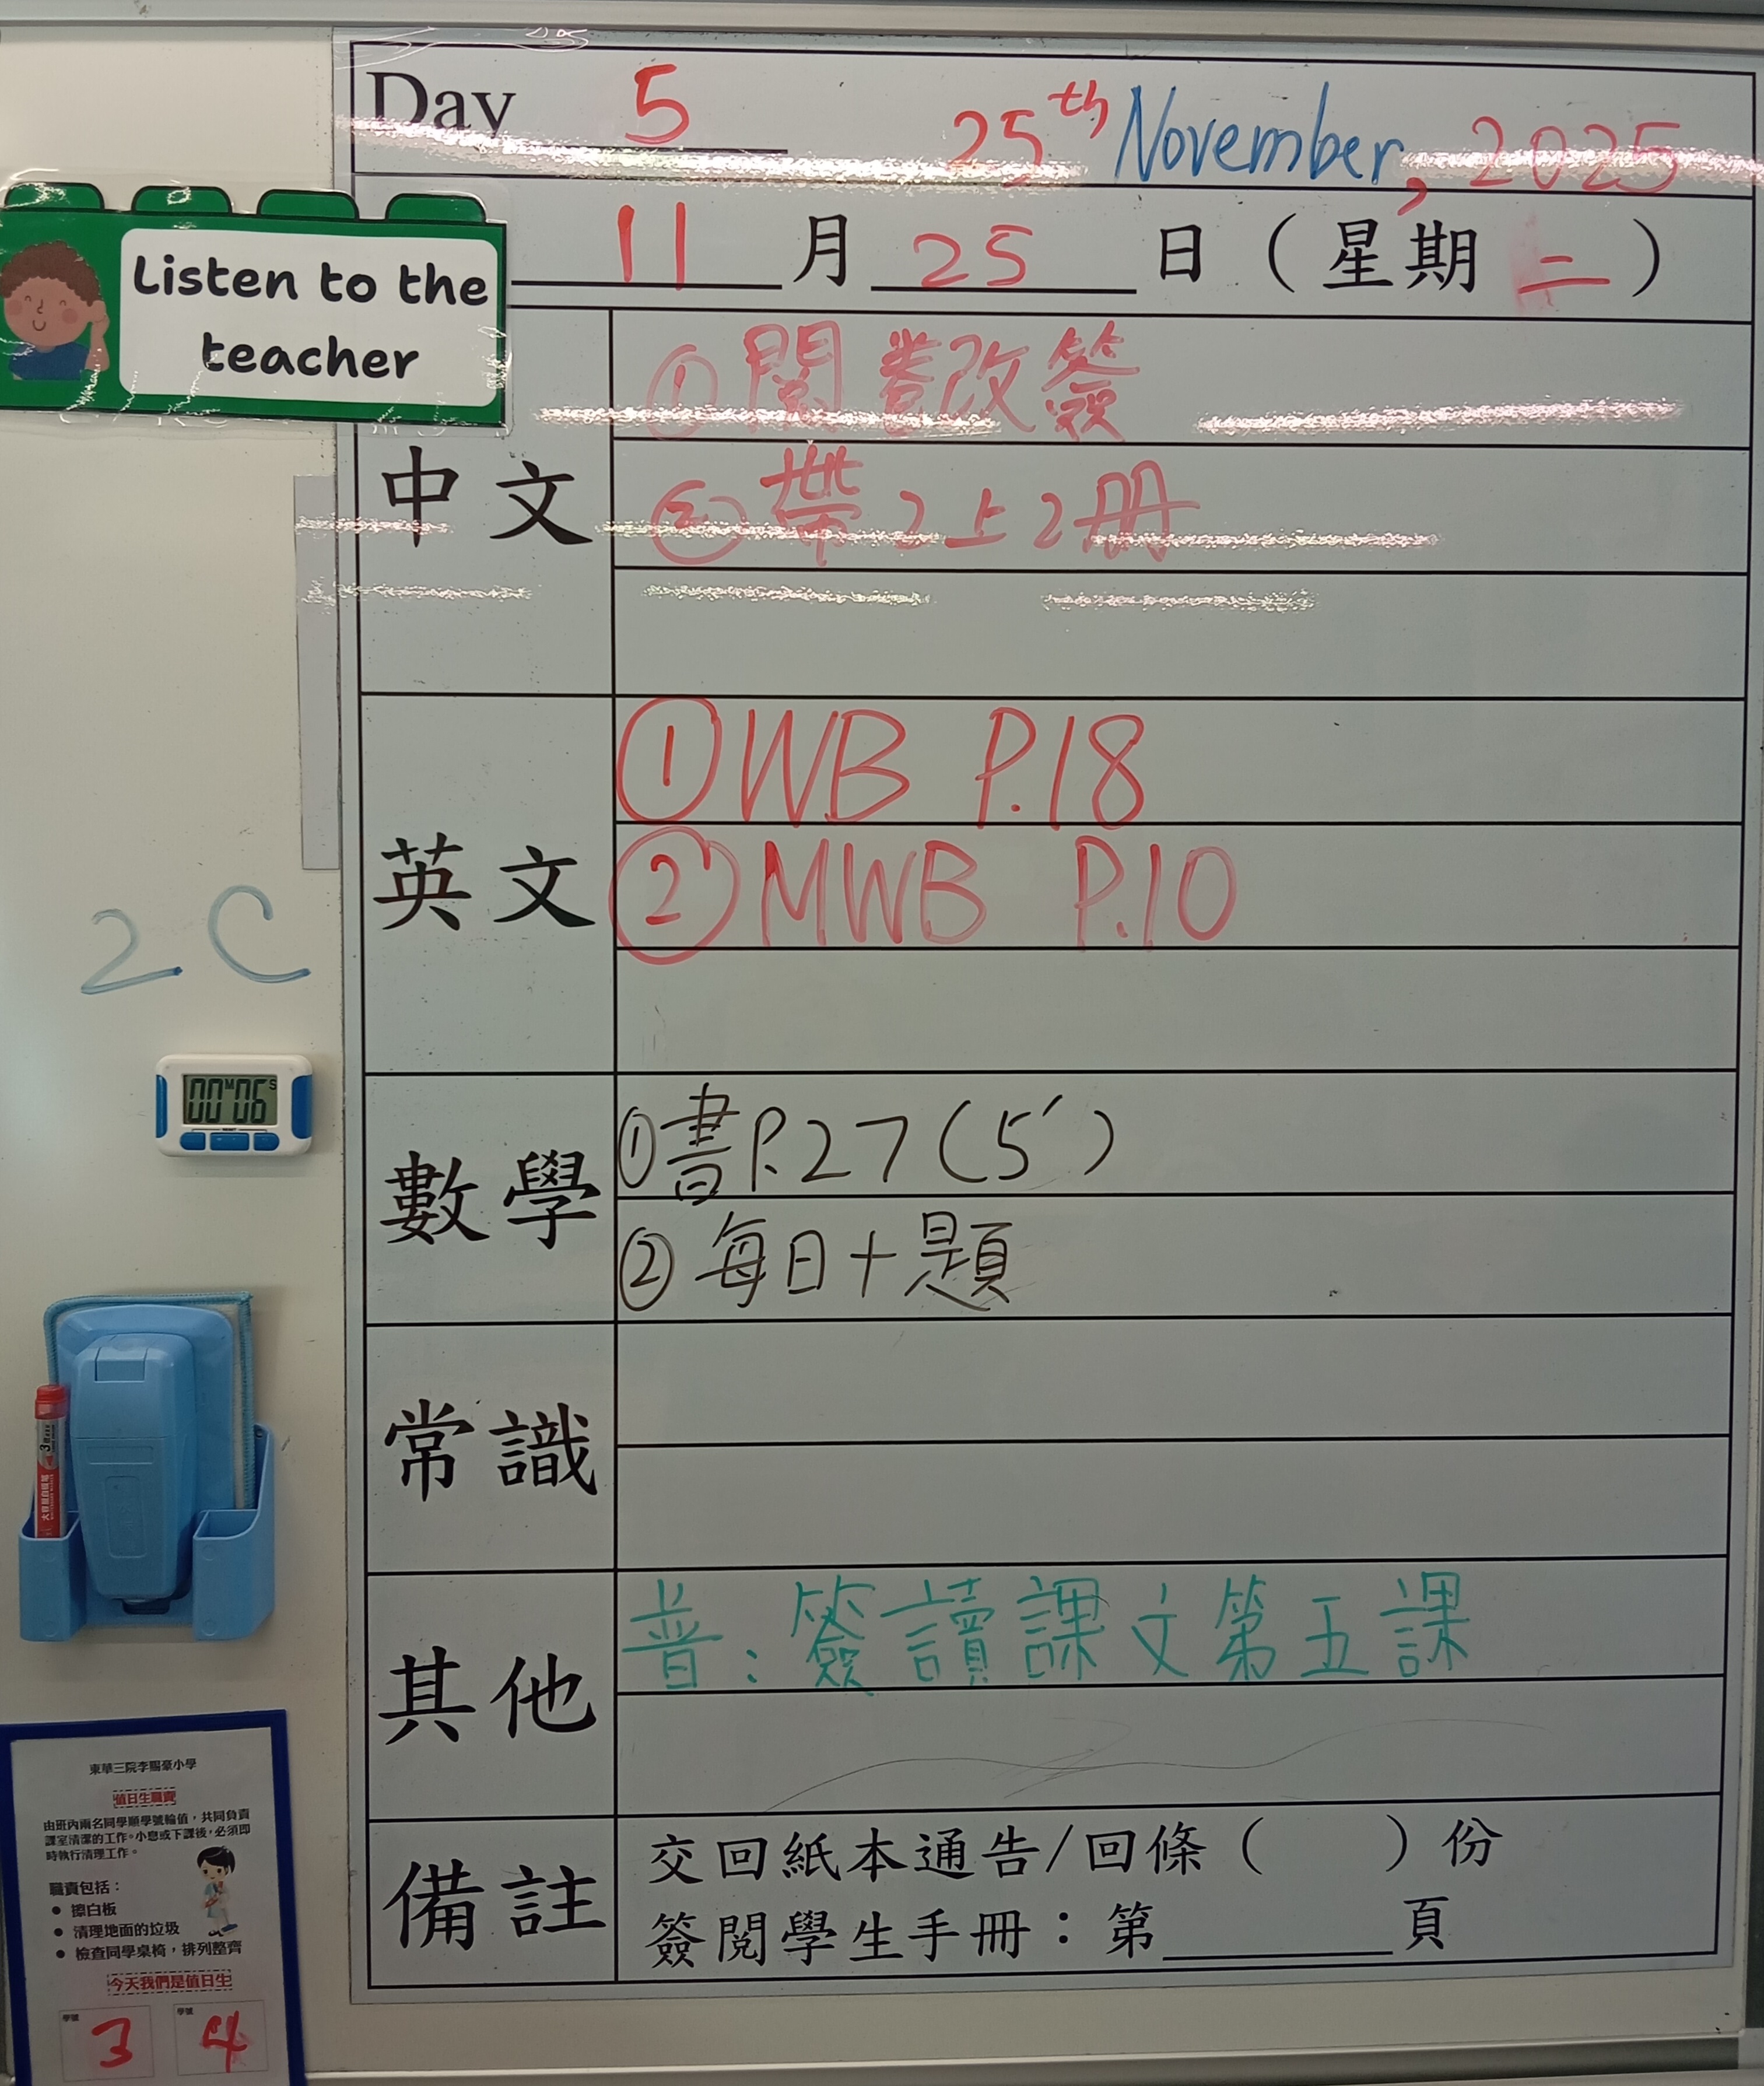 Day 5 25th November, 2025
11 月 25 日 ( 星期 二 )
Listen to the
teacher
中文
① 閱卷改簽
② 帶 2上2冊
英文
① WB P.18
② MWB P.10
2C
數學
① 書P.27 (5')
② 每日十題
00M06S
常識
其他
普：簽讀課文第五課
備註
交回紙本通告/回條 ( ) 份
簽閱學生手冊：第______頁
東華三院李賜豪小學
值日生職責
由班內兩名同學順學號輪值，共同負責
課室清潔的工作。小息或下課後，必須即
時執行清理工作。
職責包括：
● 擦白板
● 清理地面的垃圾
● 檢查同學桌椅，排列整齊
今天我們是值日生
學號 學號
3 4